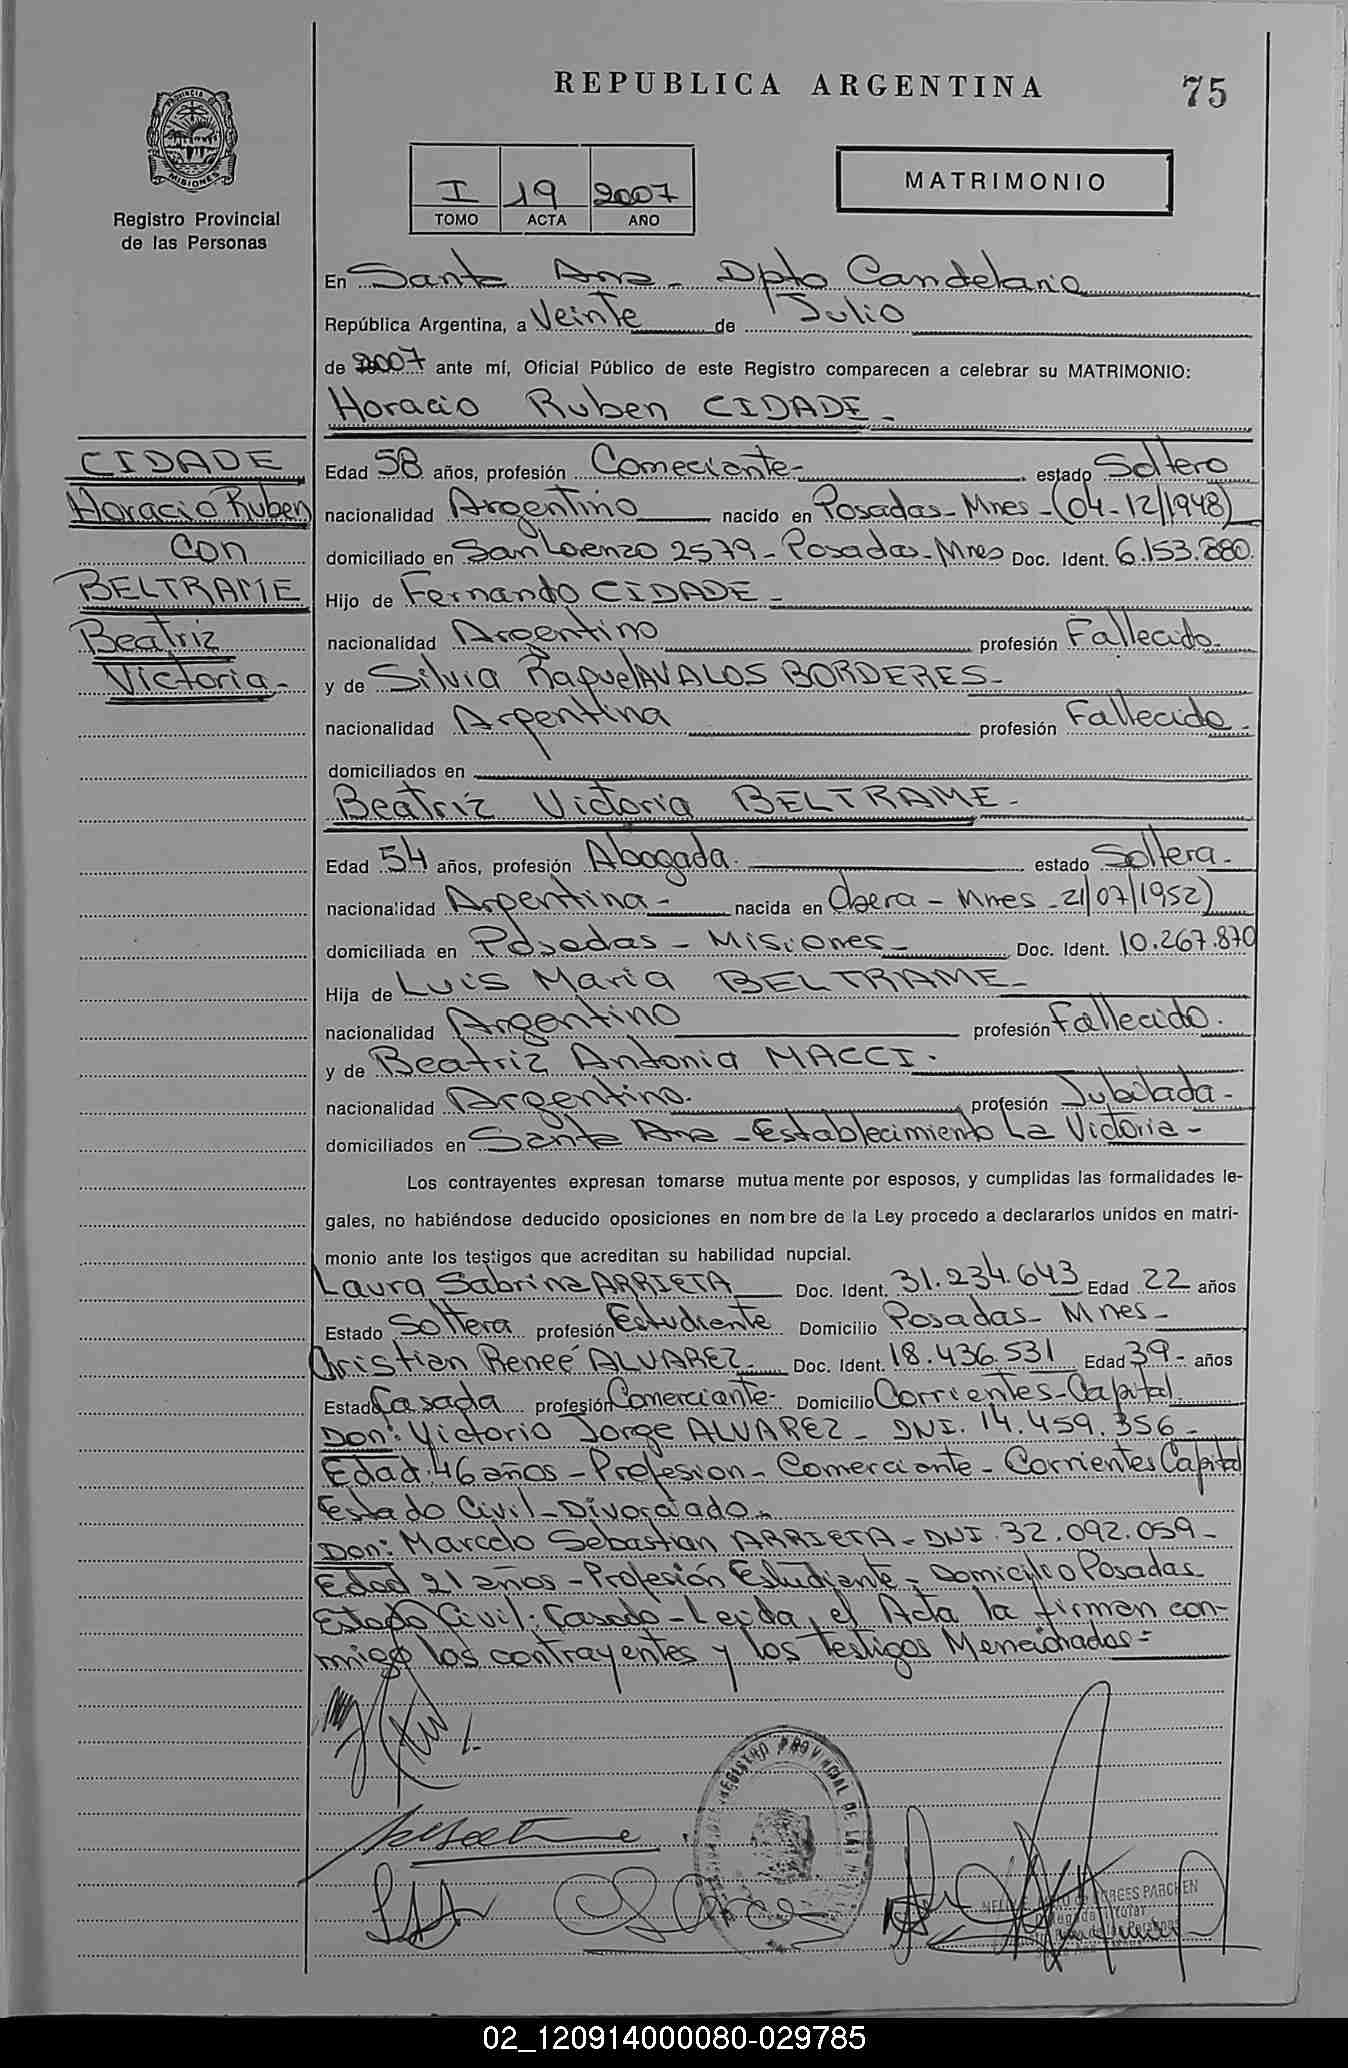 REPUBLICA ARGENTINA
75
PROVINCIA DE
MISIONES
Registro Provincial
de las Personas
I 19 2007
TOMO ACTA AÑO
MATRIMONIO
En Santa Ana - Dpto Candelaria
República Argentina, a Veinte de Julio
de 2007 ante mí, Oficial Público de este Registro comparecen a celebrar su MATRIMONIO:
Horacio Ruben CIDADE -
CIDADE
Horacio Ruben
con
BELTRAME
Beatriz
Victoria -
Edad 58 años, profesión Comeciante - estado Soltero
nacionalidad Argentino nacido en Posadas - Mnes - (04-12/1948)
domiciliado en San Lorenzo 2579 - Posadas - Mnes Doc. Ident. 6.153.880.
Hijo de Fernando CIDADE -
nacionalidad Argentino profesión Fallecido -
y de Silvia Raquel AVALOS BORDERES -
nacionalidad Argentina profesión Fallecido -
domiciliados en
Beatriz Victoria BELTRAME -
Edad 54 años, profesión Abogada. estado Soltera -
nacionalidad Argentina - nacida en Obera - Mnes - 21/07/1952)
domiciliada en Posadas - Misiones - Doc. Ident. 10.267.870
Hija de Luis Maria BELTRAME -
nacionalidad Argentino profesión Fallecido.
y de Beatriz Antonia MACCI.
nacionalidad Argentino. profesión Jubilada -
domiciliados en Santa Ana - Establecimiento La Victoria -
Los contrayentes expresan tomarse mutua mente por esposos, y cumplidas las formalidades le-
gales, no habiéndose deducido oposiciones en nom bre de la Ley procedo a declararlos unidos en matri-
monio ante los testigos que acreditan su habilidad nupcial.
Laura Sabrina ARRIETA Doc. Ident. 31.234.643 Edad 22 años
Estado Soltera profesión Estudiente Domicilio Posadas - Mnes -
Christian Reneé ALVAREZ - Doc. Ident. 18.436.531 Edad 39 - años
Estado Casada profesión Comerciante - Domicilio Corrientes - Capital
Don: Victorio Jorge ALVAREZ - DNI. 14.459.356 -
Edad: 46 años - Profesion - Comerciante - Corrientes Capital
Estado Civil - Divorciado -
Don: Marcelo Sebastian ARRIETA - DNI. 32.092.059 -
Edad 21 años - Profesión Estudiante - Domicilio Posadas
Estado Civil: Casado - Leyda, el Acta la firman con-
migo los contrayentes y los Testigos Mencionados =
REGISTRO PROVINCIAL DE LA
02_120914000080-029785